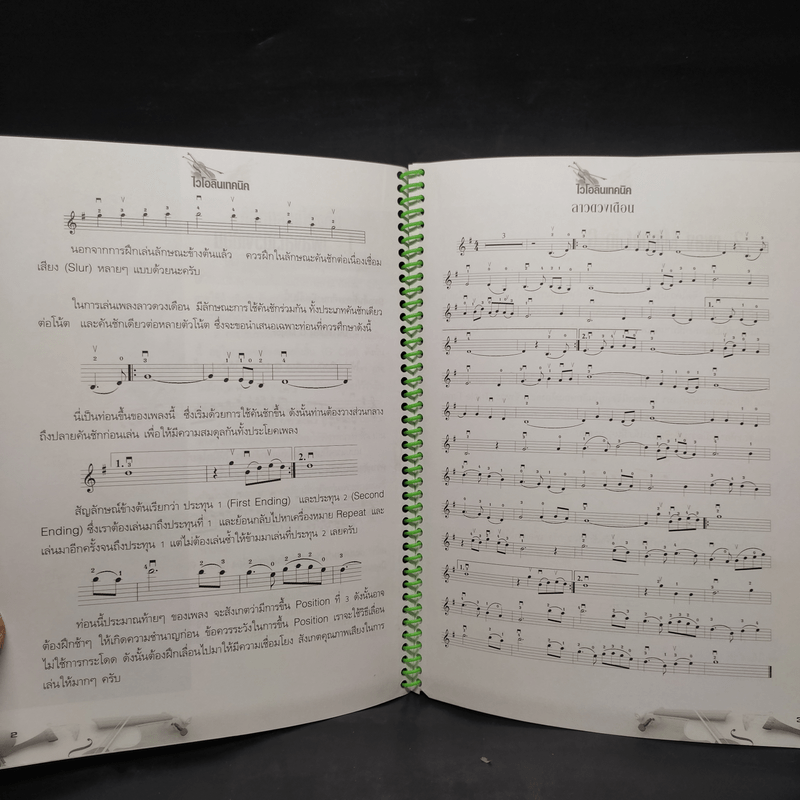 ไวโอลินเทคนิค
นอกจากการฝึกเล่นลักษณะข้างต้นแล้ว ควรฝึกในลักษณะคันชักต่อเนื่องเชื่อม
เสียง (Slur) หลายๆ แบบด้วยนะครับ
ในการเล่นเพลงลาวดวงเดือน มีลักษณะการใช้คันชักร่วมกัน ทั้งประเภทคันชักเดียว
ต่อโน้ต และคันชักเดียวต่อหลายตัวโน้ต ซึ่งจะขอนำเสนอเฉพาะท่อนที่ควรศึกษาดังนี้
นี่เป็นท่อนขึ้นของเพลงนี้ ซึ่งเริ่มด้วยการใช้คันชักขึ้น ดังนั้นท่านต้องวางส่วนกลาง
ถึงปลายคันชักก่อนเล่น เพื่อให้มีความสมดุลกันทั้งประโยคเพลง
1. 2.
สัญลักษณ์ข้างต้นเรียกว่า ประทุน 1 (First Ending) และประทุน 2 (Second
Ending) ซึ่งเราต้องเล่นมาถึงประทุนที่ 1 และย้อนกลับไปหาเครื่องหมาย Repeat และ
เล่นมาอีกครั้งจนถึงประทุน 1 แต่ไม่ต้องเล่นซ้ำให้ข้ามมาเล่นที่ประทุน 2 เลยครับ
ท่อนนี้ประมาณท้ายๆ ของเพลง จะสังเกตว่ามีการขึ้น Position ที่ 3 ดังนั้นอาจ
ต้องฝึกช้าๆ ให้เกิดความชำนาญก่อน ข้อควรระวังในการขึ้น Position เราจะใช้วิธีเลื่อน
ไม่ใช้การกระโดด ดังนั้นต้องฝึกเลื่อนไปมาให้มีความเชื่อมโยง สังเกตคุณภาพเสียงในการ
เล่นให้มากๆ ครับ
2
ไวโอลินเทคนิค
ลาวดวงเดือน
3
1.
2.
1.
2.